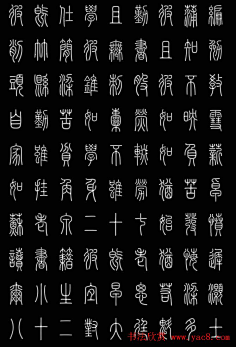 彼既仕學且勤披蒲編
削竹簡彼無書且知勉
頭懸梁錐刺股彼不教
自勤苦如囊螢如映雪
家雖貧學不輟如負薪
如挂角身雖勞猶苦卓
蘇老泉二十七始發憤
讀書籍彼既老猶悔遲
爾小生宜早思若梁灝
八十二對大廷魁多士
书法欣赏
www.yac8.com